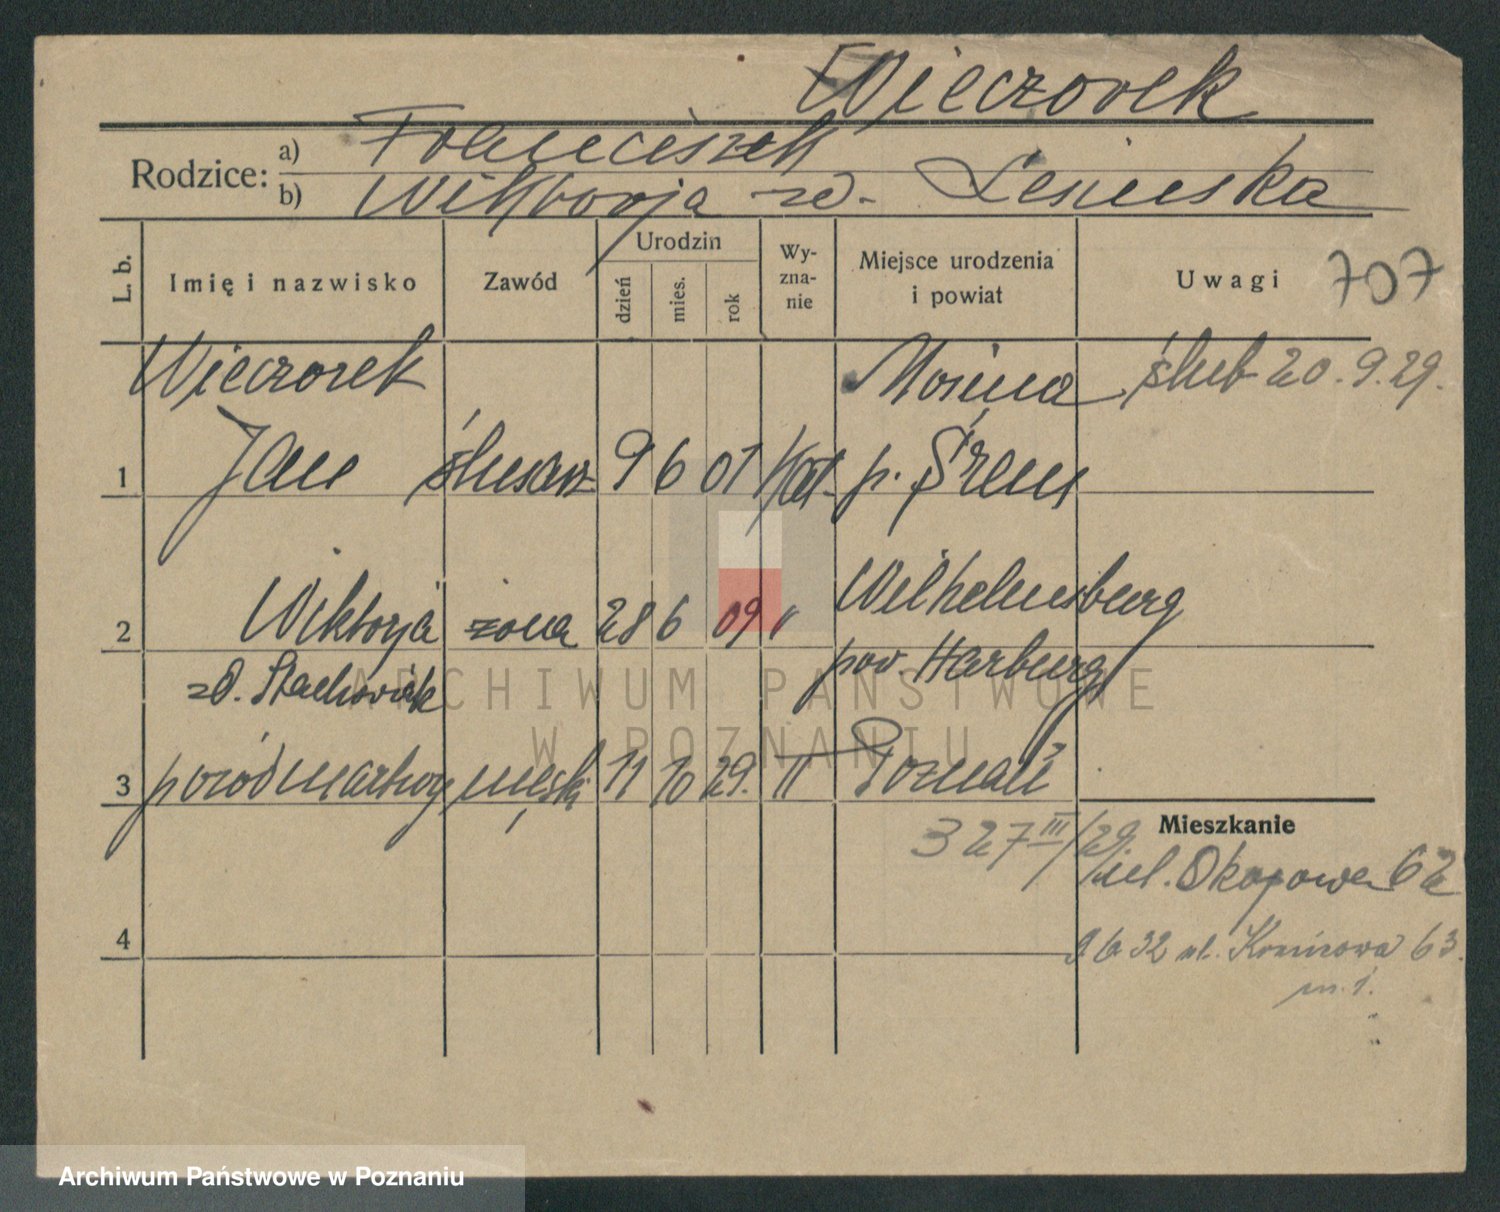 Wieczorek
Rodzice: a) Franciszek
b) Wiktorja zd. Lesińska
L. b. Imię i nazwisko Zawód Urodzin dzień mies. rok Wy-zna-nie Miejsce urodzenia i powiat Uwagi 707
Wieczorek Mosina ślub 20.9.29.
1 Jan ślusarz 9 6 01 kat. p. Śrem
2 Wiktorja żona 28 6 09 " Wilhelmsburg
zd. Stachowiak pow. Harburg
3 poród martwy męski 11 10 29. " Poznań
327 III/29. Mieszkanie
ul. Okopowa 62
4
9 6 32 ul. 63.
m. 1.
ARCHIWUM PAŃSTWOWE
W POZNANIU
Archiwum Państwowe w Poznaniu